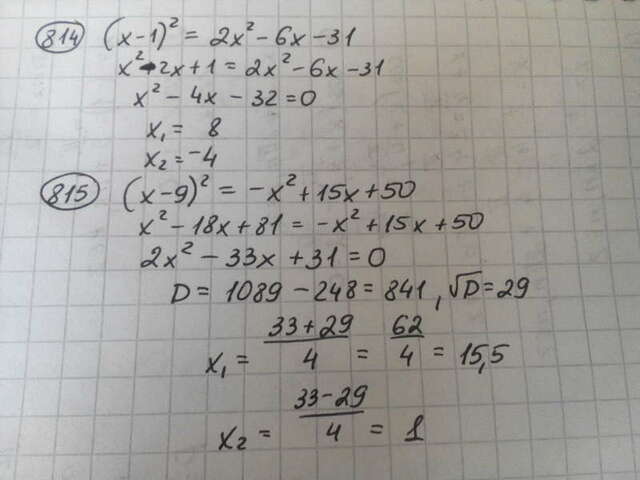 814 (x-1)² = 2x² - 6x - 31
x² - 2x + 1 = 2x² - 6x - 31
x² - 4x - 32 = 0
x₁ = 8
x₂ = -4
815 (x-9)² = -x² + 15x + 50
x² - 18x + 81 = -x² + 15x + 50
2x² - 33x + 31 = 0
D = 1089 - 248 = 841, √D = 29
x₁ = (33+29)/4 = 62/4 = 15,5
x₂ = (33-29)/4 = 1